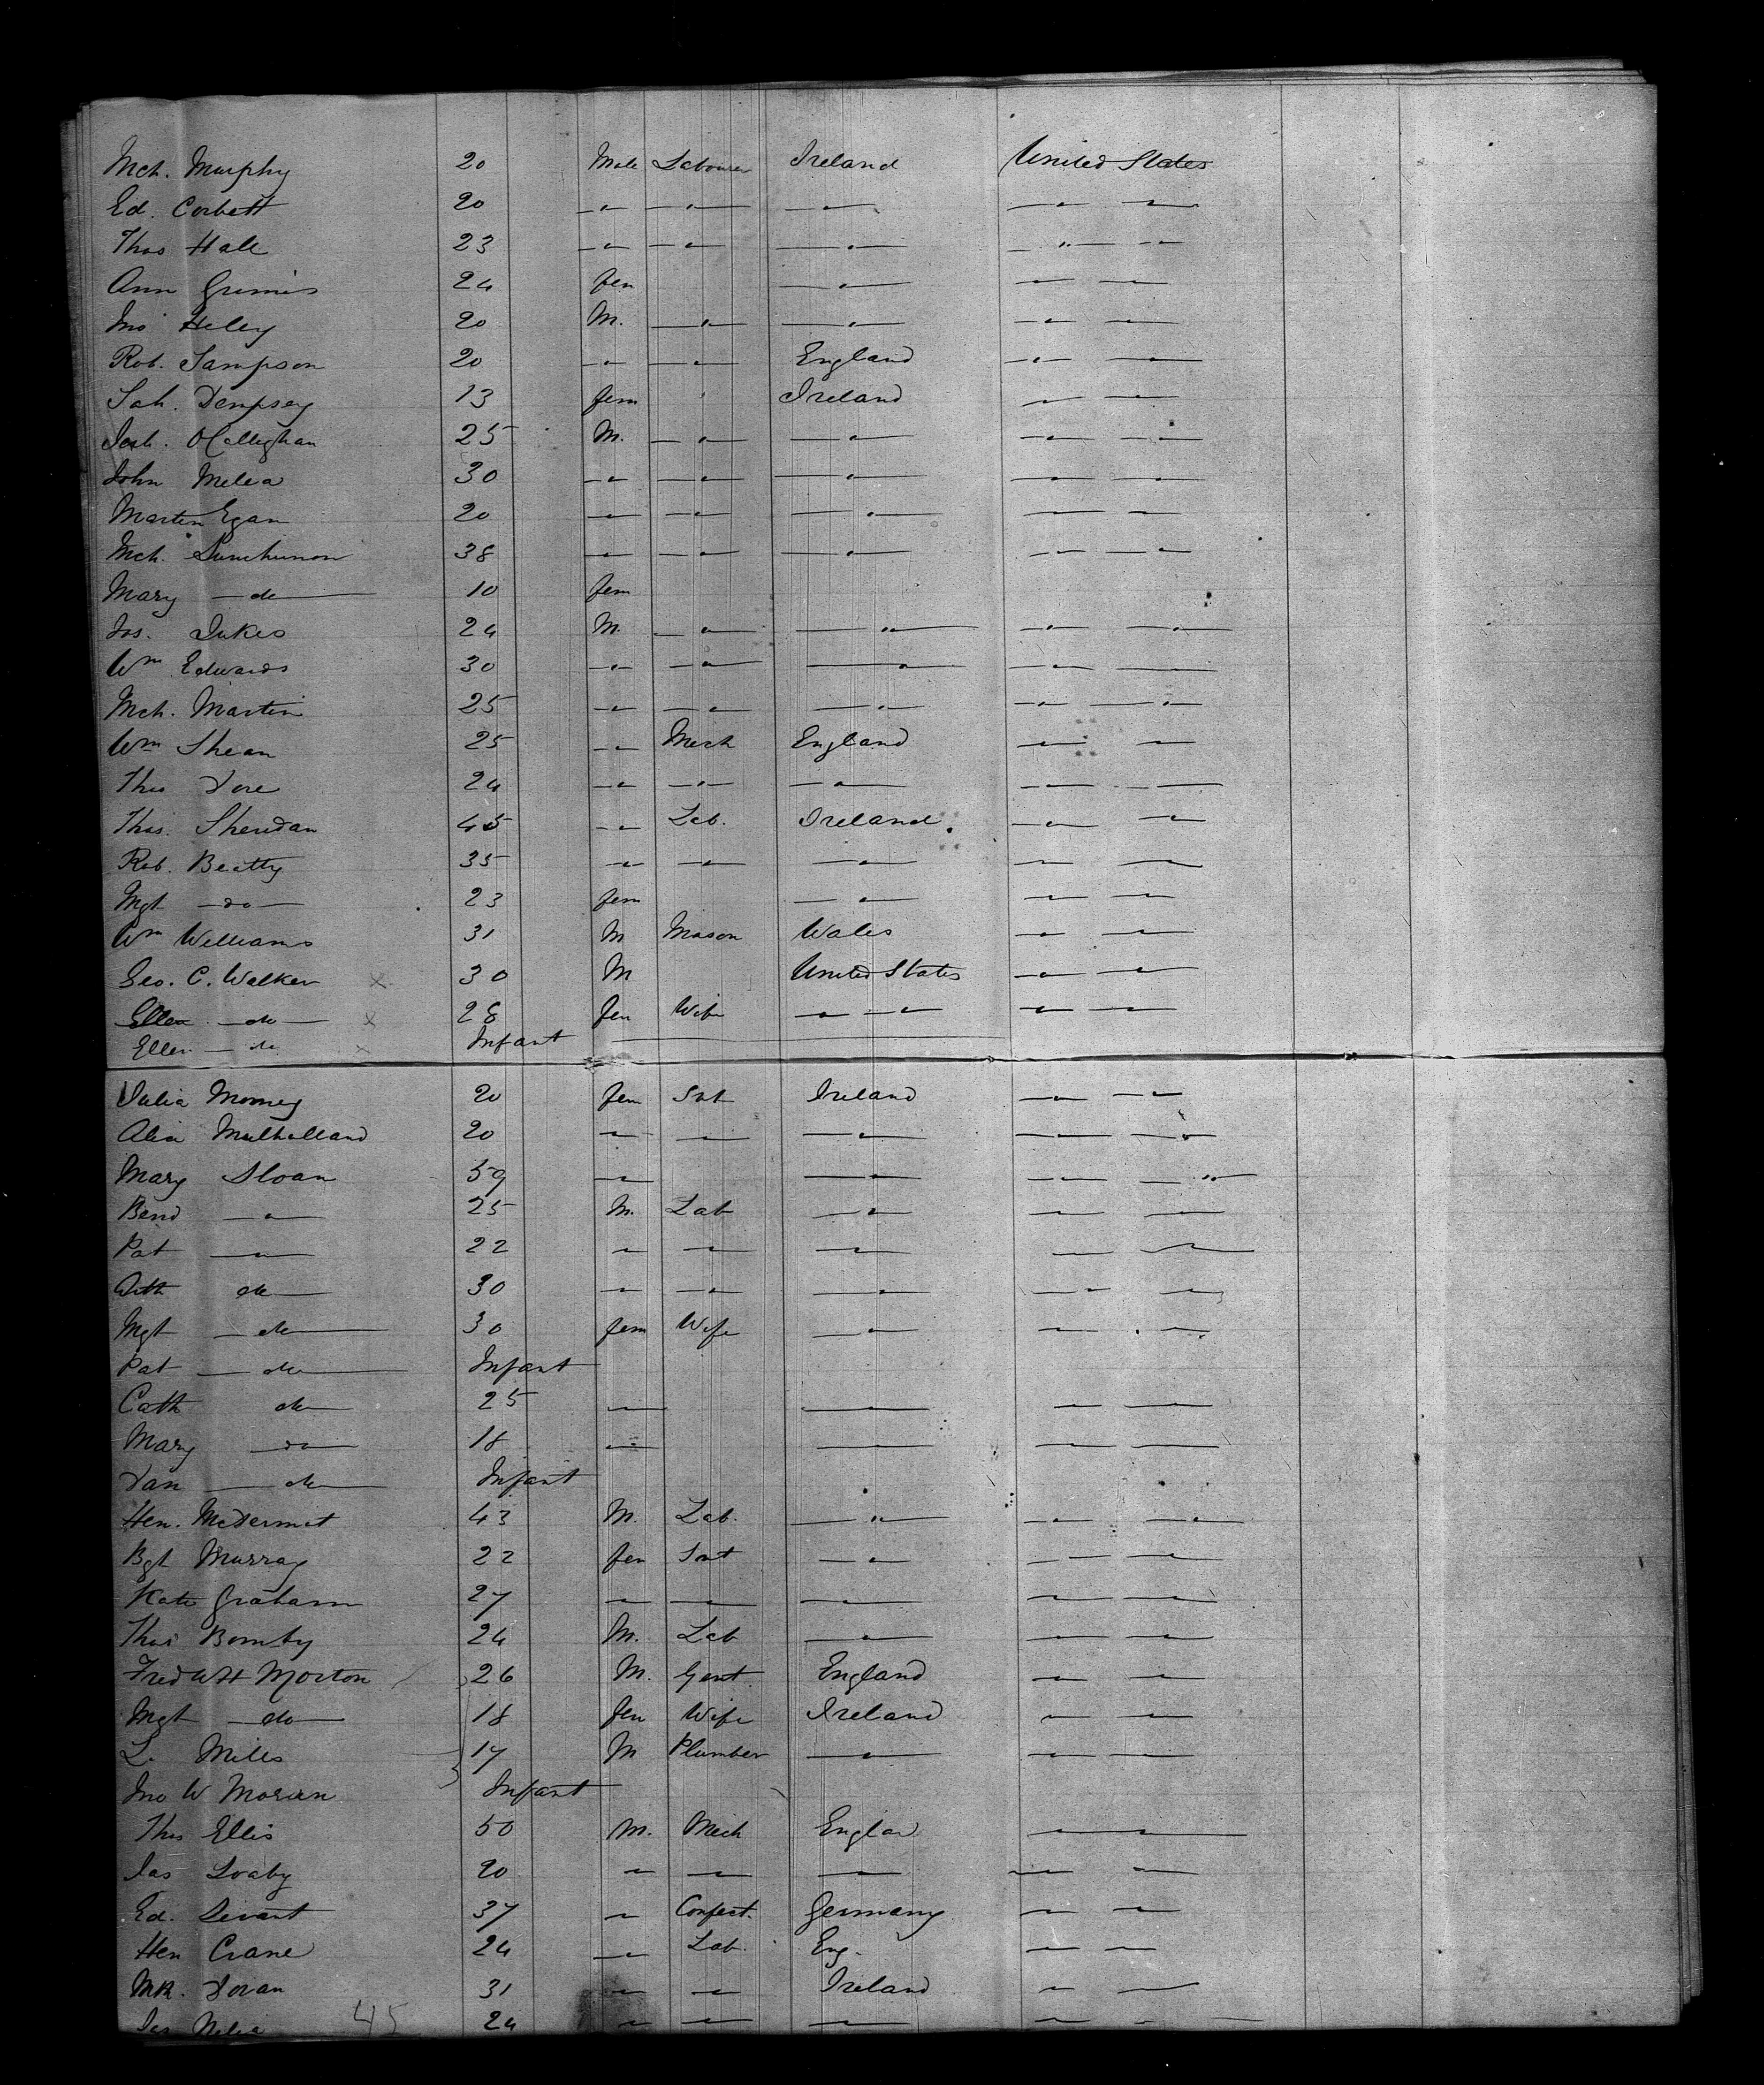 Mch. Murphy 20 Male Labourer Ireland United States
Ed. Corbett 20
Thos Hale 23
Ann Grimes 24 fem
Jno Heley 20 M.
Rob. Sampson 20 England
Sah. Dempsey 13 fem Ireland
Josh. OCallighan 25 M.
John Melia 30
Martin Egan 20
Mch. 38
Mary do 10 fem
Jos. Jukes 24 M.
Wm Edwards 30
Mch. Martin 25
Wm Shean 25 Mech England
Thos Dore 24
Thos. Sheridan 45 Lab. Ireland
Rob. Beatty 35
Mgt do 23 fem
Wm Williams 31 M Mason Wales
Geo. C. Walker x 30 M United States
Ellen do x 28 fem Wife
Ellen do x Infant
Julia 20 fem Svt Ireland
Alice Mulholland 20
Mary Sloan 59
Bend 25 M. Lab
Pat 22
do 30
Mgt do 30 fem Wife
Pat do Infant
Cath do 25
Mary do 18
Dan do Infant
Hen. McDermit 43 M. Lab.
Bgt Murray 22 fem Svt
Kate Graham 27
Thos 24 M. Lab
Fred Wt Morton 26 M. Gent England
Mgt do 18 fem Wife Ireland
L. Mills 17 M Plumber
Jno W Infant
Thos Ellis 50 M. Mech England
Jas 20
Ed. 37 Confect. Germany
Hen Crane 24 Lab. Eng.
Doran 31 Ireland
Jas 45 24